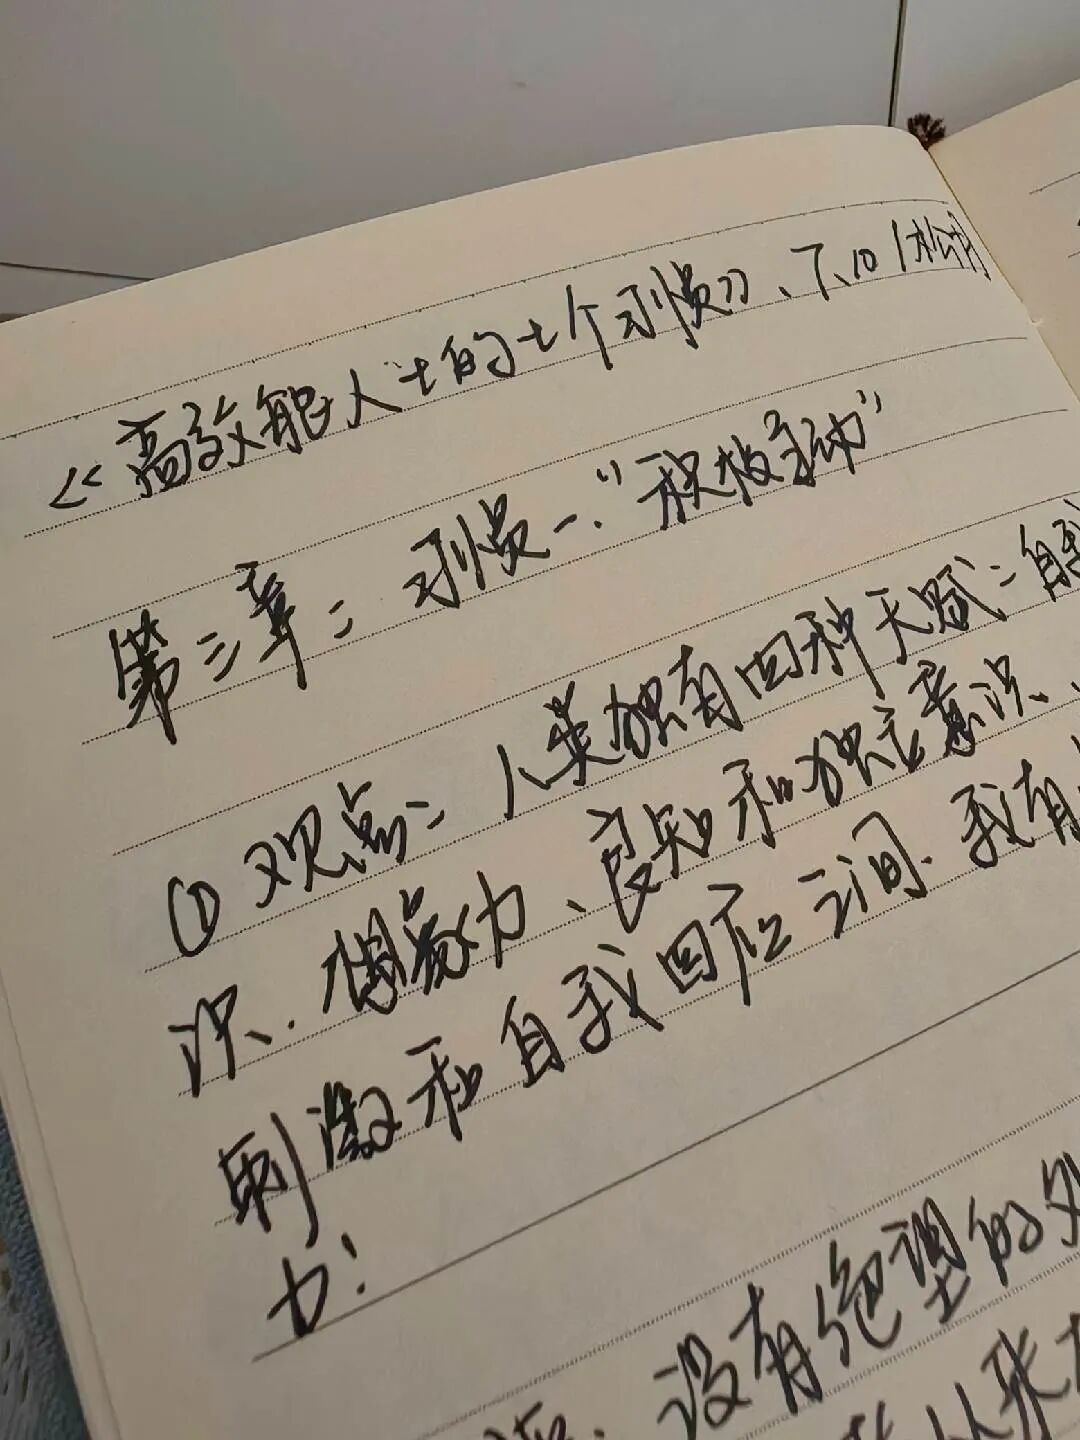 《高效能人士的七个习惯》、
第三章：习惯一：“积极主动”
① 观点：人类独有四种天赋：自我
识、想象力、良知和独立意识、
刺激和自我回应之间、我有
力！
没有绝望的